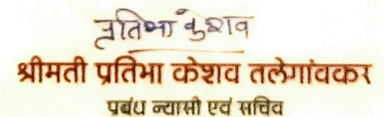 प्रतिभा केशव
श्रीमती प्रतिभा केशव तलेगांवकर
प्रबंध न्यासी एवं सचिव